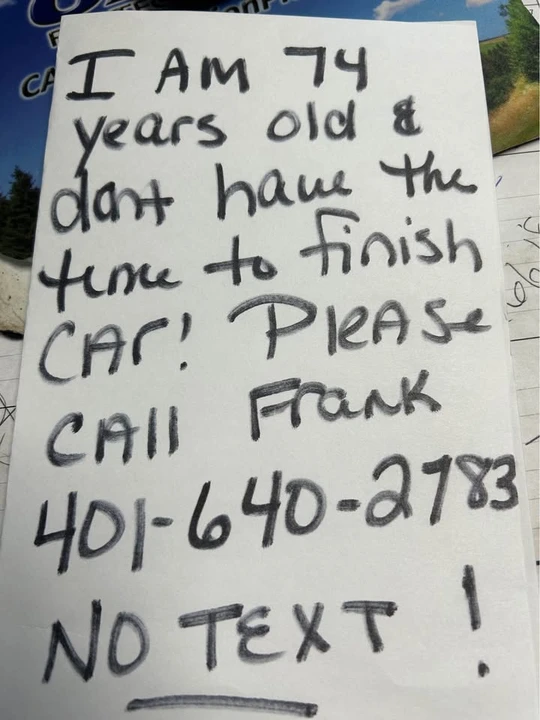 CA
I AM 74
years old &
dont have the
time to finish
CAr! PleASe
CAll Frank
401-640-2783
NO TEXT !